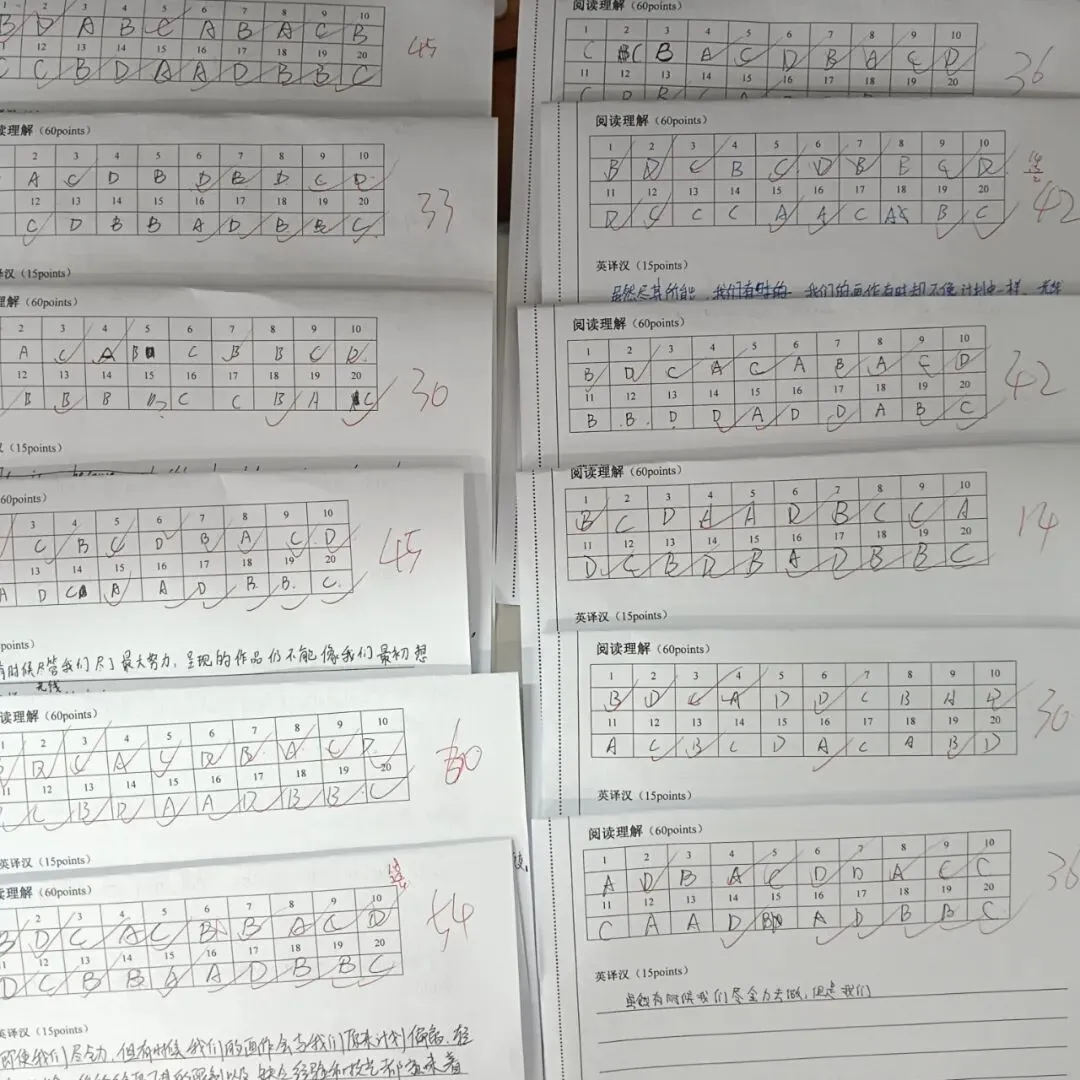 1 2 3 4 5 6 7 8 9 10
B D A B C A B A C B
12 13 14 15 16 17 18 19 20
C C B D A A D B B C
45
读理解（60points）
2 3 4 5 6 7 8 9 10
A C D B D B D C D
12 13 14 15 16 17 18 19 20
C D B B A D B B C
33
译汉（15points）
理解（60points）
2 3 4 5 6 7 8 9 10
A C A B C B B C D
12 13 14 15 16 17 18 19 20
B B B C C B A C
30
汉（15points）
60points）
3 4 5 6 7 8 9 10
C B C D B A C D
13 14 15 16 17 18 19 20
A D C A A D B B C
45
points）
有时候尽管我们尽了最大努力，呈现的作品仍不能像我们最初想
无线
读理解（60points）
1 2 3 4 5 6 7 8 9 10
D C A C D B A C D
11 12 13 14 15 16 17 18 19 20
C B D A A D B B C
60
英译汉（15points）
读理解（60points）
2 3 4 5 6 7 8 9 10
B D C A C B B A C D
11 12 13 14 15 16 17 18 19 20
D C B B A A D B B C
54
英译汉（15points）
即使我们尽全力，但有时候我们的画作会与我们原来计划偏离，
阅读理解（60points）
1 2 3 4 5 6 7 8 9 10
C B C B A C D B A C D
11 12 13 14 15 16 17 18 19 20
36
阅读理解（60points）
1 2 3 4 5 6 7 8 9 10
B D C B C D B B C D
11 12 13 14 15 16 17 18 19 20
D C C C A A C A B C
42
英译汉（15points）
虽然尽其所能，我们有时的 我们的画作有时却不像计划中一样，
阅读理解（60points）
1 2 3 4 5 6 7 8 9 10
B D C A C A B A C D
11 12 13 14 15 16 17 18 19 20
B B D D A D D A B C
42
阅读理解（60points）
1 2 3 4 5 6 7 8 9 10
B C D A A D B C C A
11 12 13 14 15 16 17 18 19 20
D C B D B A D B B C
14
英译汉（15points）
阅读理解（60points）
1 2 3 4 5 6 7 8 9 10
B D C A D D C B A D
11 12 13 14 15 16 17 18 19 20
A C B C D A C A B D
30
英译汉（15points）
阅读理解（60points）
1 2 3 4 5 6 7 8 9 10
A D B A C D D A C C
11 12 13 14 15 16 17 18 19 20
C A A D B A D B B C
36
英译汉（15points）
虽然有时候我们尽全力去做，但是我们